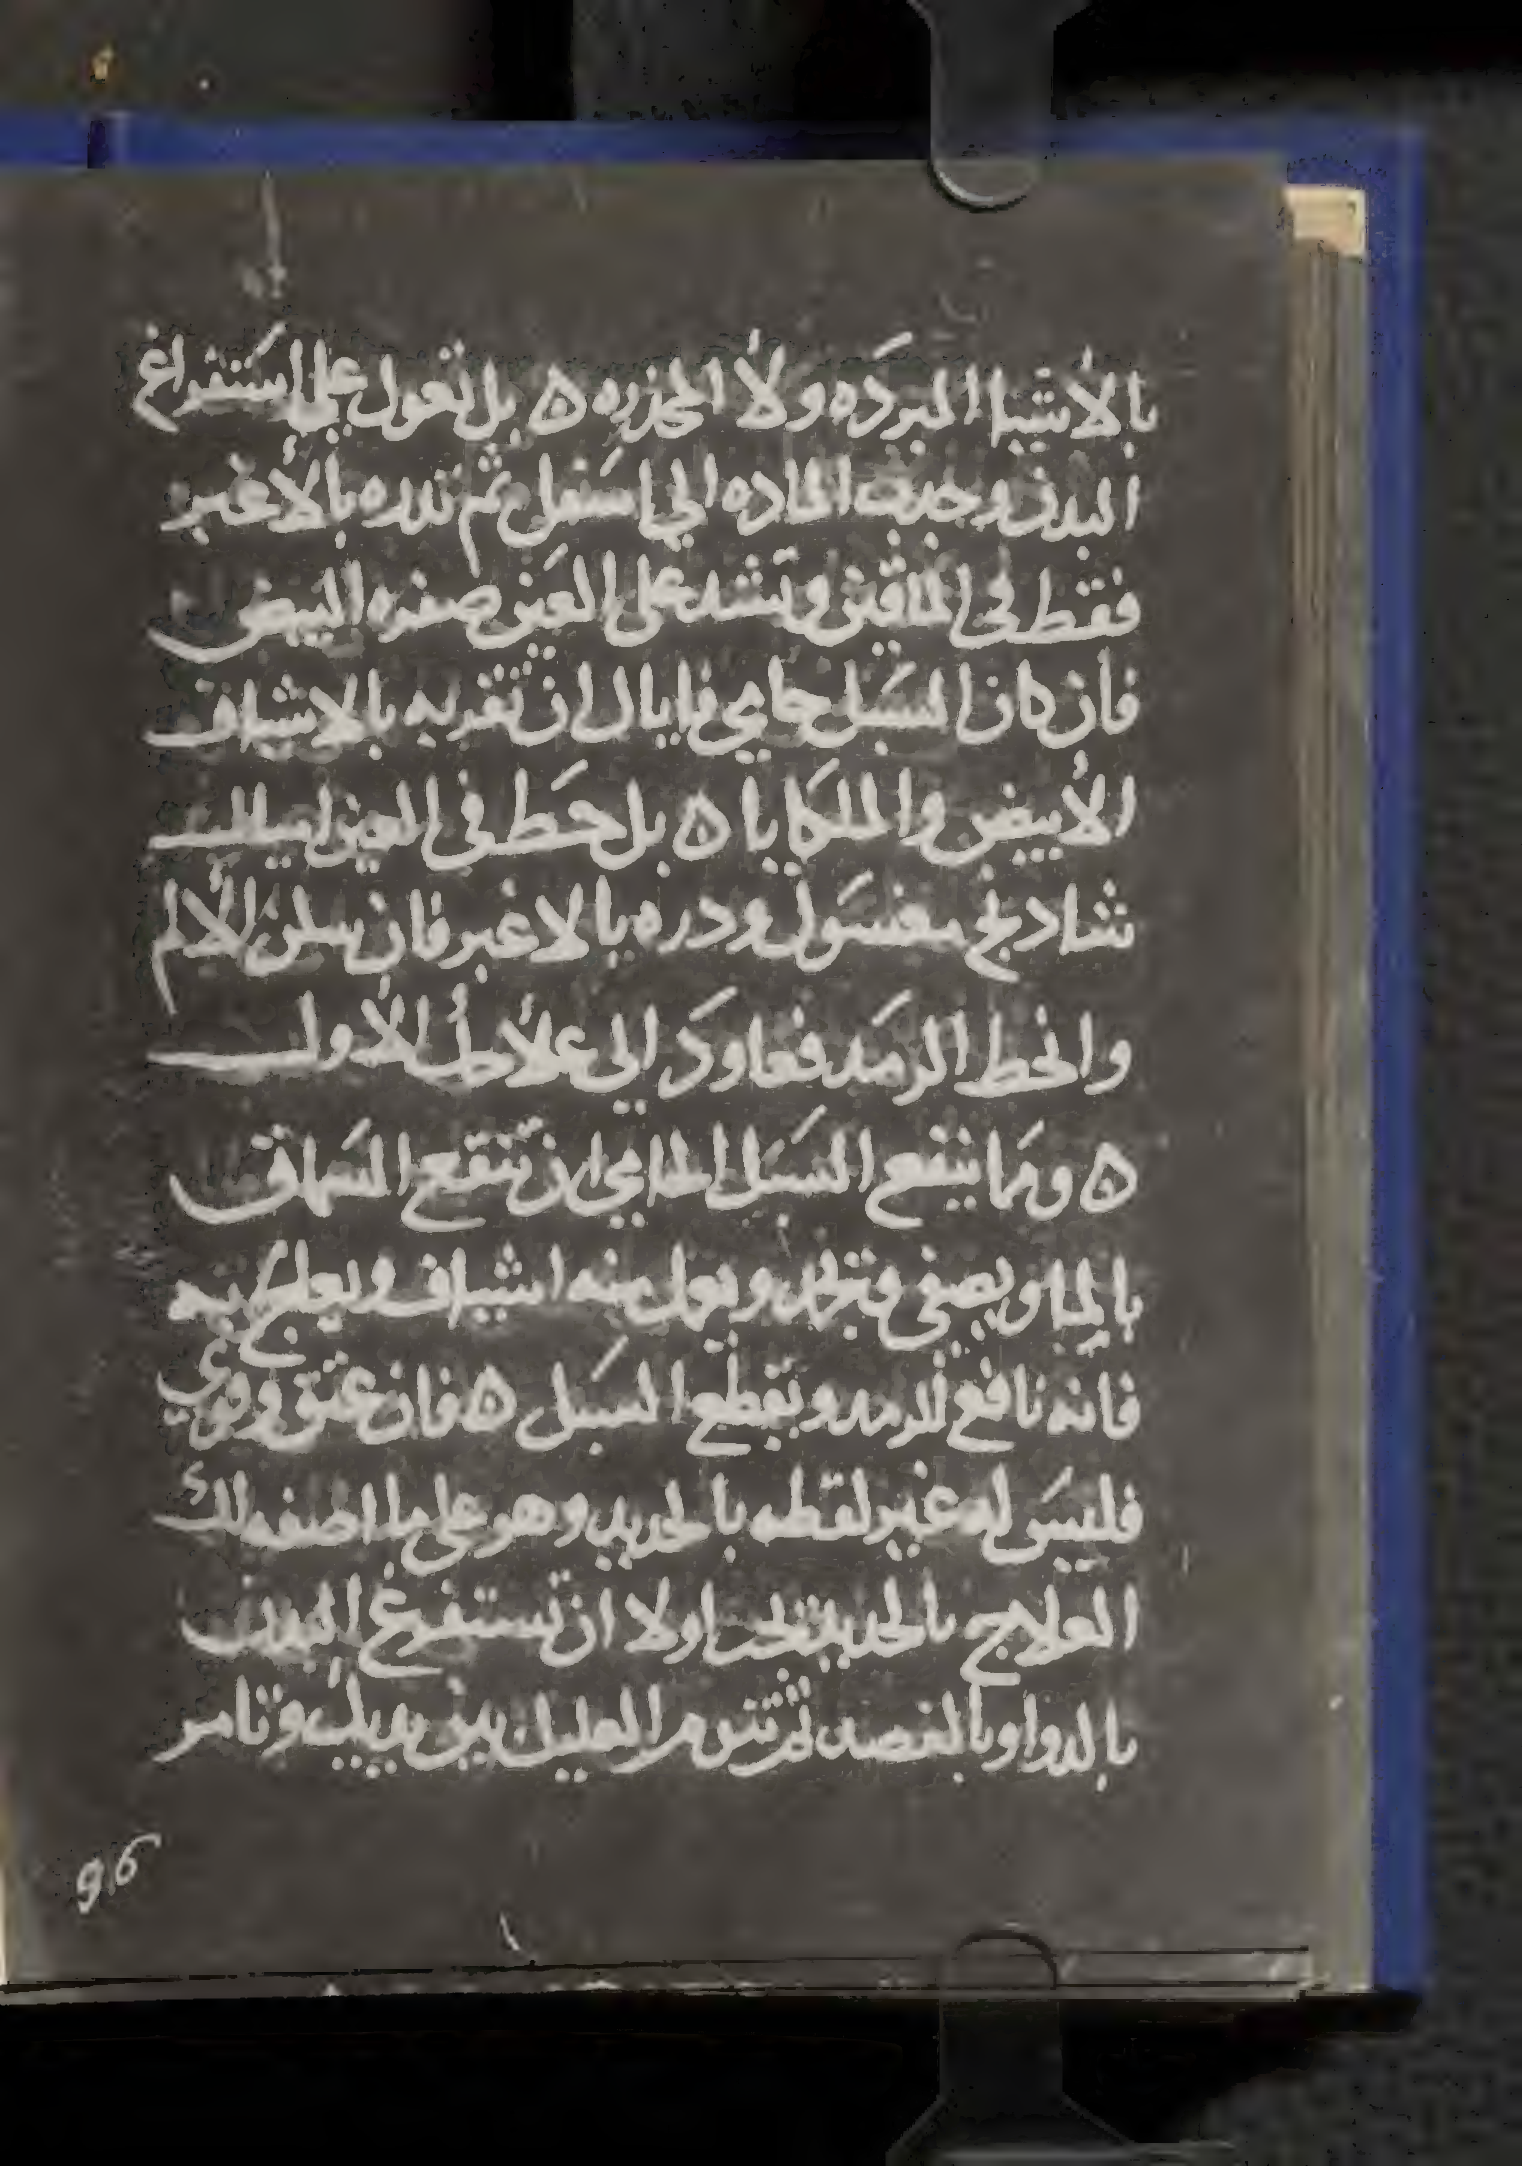 بالأشيا المبرده ولا المخدره ه بل تعول على استفراغ
البدن وجدب الماده الي اسفل ثم تدره بالأغبر
فقط في الماقين وتشد على العين صفره البيض
فان كان السبل حامي فاياك ان تقربه بالاشياف
الأبيض والملكايا ه بل حط في العين اسياف
شادنج مغسول ودره بالاغبر فان سكن الألم
وانحط الرمد فعاود الى علاجك الأول
ه ومما ينفع السبل الحامي ان تنقع السماق
بالما ويصفى وتجمد ويعمل منه اشياف ويعالج به
فانه نافع للرمد ويقطع السبل ه فان عتق وقوي
فليس له غير لقطه بالحديد وهو على ما اصفه لك
العلاج بالحديد يجب اولا ان تستفرغ البدن
بالدوا وبالفصد ثم تنوم العليل بين يديك وتامر
96